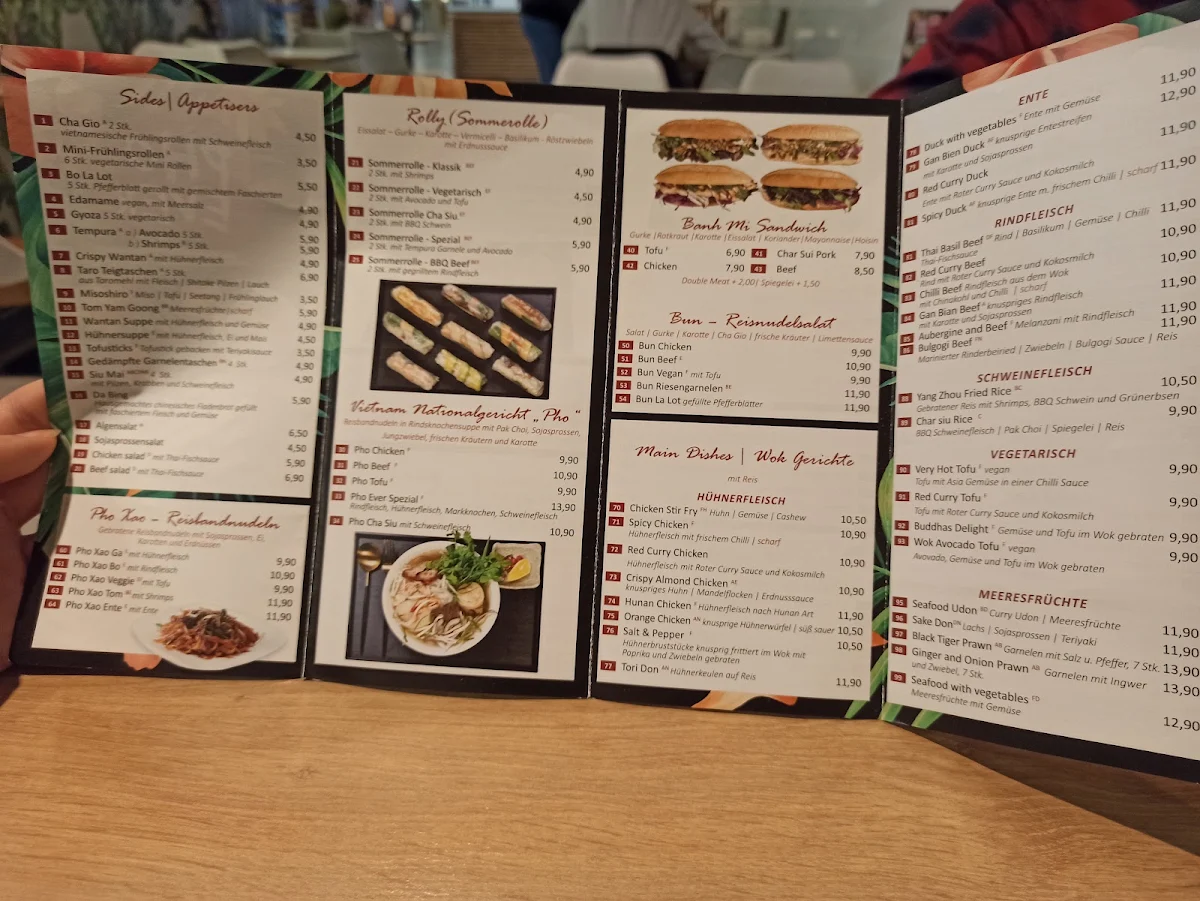 Sides | Appetisers
1 Cha Gio A 2 Stk.
vietnamesische Frühlingsrollen mit Schweinefleisch 4,50
2 Mini-Frühlingsrollen A
6 Stk. vegetarische Mini Rollen 3,50
3 Bo La Lot
5 Stk. Pfefferblatt gerollt mit gemischtem Faschierten 5,50
4 Edamame vegan, mit Meersalz 4,90
5 Gyoza 5 Stk. vegetarisch 4,90
6 Tempura A a) Avocado 5 Stk. 5,90
b) Shrimps B 5 Stk. 5,90
7 Crispy Wantan A mit Hühnerfleisch 4,90
8 Taro Teigtaschen A 5 Stk. 6,90
aus Taromehl mit Fleisch | Shitake Pilzen | Lauch
9 Misoshiro F Miso | Tofu | Seetang | Frühlingslauch 3,50
10 Tom Yam Goong Meeresfrüchte|scharf 5,90
11 Wantan Suppe mit Hühnerfleisch und Gemüse 4,90
12 Hühnersuppe mit Hühnerfleisch, Ei und Mais 4,50
13 Tofusticks Tofustick gebacken mit Teriyakisauce 3,50
14 Gedämpfte Garnelentaschen 4 Stk. 4,90
15 Siu Mai 4 Stk. 4,90
mit Pilzen, Krabben und Schweinefleisch
16 Da Bing 5,90
chinesischer Fladenbrot gefüllt
mit faschiertem Fleisch und Gemüse
17 Algensalat 6,50
18 Sojasprossensalat 4,50
19 Chicken salad mit Thai-Fischsauce 5,90
20 Beef salad mit Thai-Fischsauce 6,90
Pho Xao – Reisbandnudeln
Gebratene Reisbandnudeln mit Sojasprossen, Ei,
Karotten und Erdnüssen
60 Pho Xao Ga mit Hühnerfleisch 9,90
61 Pho Xao Bo mit Rindfleisch 10,90
62 Pho Xao Veggie mit Tofu 9,90
63 Pho Xao Tom mit Shrimps 11,90
64 Pho Xao Ente mit Ente 11,90
Rolly (Sommerolle)
Eissalat – Gurke – Karotte – Vermicelli – Basilikum - Röstzwiebeln
mit Erdnusssauce
21 Sommerrolle - Klassik 4,90
2 Stk. mit Shrimps
22 Sommerrolle - Vegetarisch 4,50
2 Stk. mit Avocado und Tofu
23 Sommerrolle Cha Siu 4,90
2 Stk. mit BBQ Schwein
24 Sommerrolle - Spezial 5,90
2 Stk. mit Tempura Garnele und Avocado
25 Sommerrolle - BBQ Beef 5,90
2 Stk. mit gegrilltem Rindfleisch
Vietnam Nationalgericht „Pho "
Reisbandnudeln in Rindsknochensuppe mit Pak Choi, Sojasprossen,
Jungzwiebel, frischen Kräutern und Karotte
30 Pho Chicken F 9,90
31 Pho Beef F 10,90
32 Pho Tofu F 9,90
33 Pho Ever Spezial F 13,90
Rindfleisch, Hühnerfleisch, Markknochen, Schweinefleisch
34 Pho Cha Siu mit Schweinefleisch 10,90
Banh Mi Sandwich
Gurke |Rotkraut |Karotte |Eissalat | Koriander|Mayonnaise|Hoisin
40 Tofu F 6,90 41 Char Sui Pork 7,90
42 Chicken 7,90 43 Beef 8,50
Double Meat + 2,00| Spiegelei + 1,50
Bun – Reisnudelsalat
Salat | Gurke | Karotte | Cha Gio | frische Kräuter | Limettensauce
50 Bun Chicken 9,90
51 Bun Beef E 10,90
52 Bun Vegan F mit Tofu 9,90
53 Bun Riesengarnelen 11,90
54 Bun La Lot gefüllte Pfefferblätter 11,90
Main Dishes | Wok Gerichte
mit Reis
HÜHNERFLEISCH
70 Chicken Stir Fry Huhn | Gemüse | Cashew 10,50
71 Spicy Chicken F 10,90
Hühnerfleisch mit frischem Chilli | scharf
72 Red Curry Chicken 10,90
Hühnerfleisch mit Roter Curry Sauce und Kokosmilch
73 Crispy Almond Chicken AE
knuspriges Huhn | Mandelflocken | Erdnusssauce
74 Hunan Chicken E Hühnerfleisch nach Hunan Art 11,90
75 Orange Chicken AN knusprige Hühnerwürfel | süß sauer 10,50
76 Salt & Pepper E 10,50
Hühnerbruststücke knusprig frittiert im Wok mit
Paprika und Zwiebeln gebraten
77 Tori Don AN Hühnerkeulen auf Reis 11,90
ENTE
78 Duck with vegetables E Ente mit Gemüse 11,90
79 Gan Bien Duck knusprige Entestreifen 12,90
mit Karotte und Sojasprossen
80 Red Curry Duck 11,90
Ente mit Roter Curry Sauce und Kokosmilch
81 Spicy Duck knusprige Ente m. frischem Chilli | scharf 11,90
RINDFLEISCH
81 Thai Basil Beef Rind | Basilikum | Gemüse | Chilli 11,90
Thai-Fischsauce
82 Red Curry Beef 10,90
Rind mit Roter Curry Sauce und Kokosmilch
83 Chilli Beef Rindfleisch aus dem Wok 10,90
mit Chinakohl und Chilli | scharf
84 Gan Bian Beef knuspriges Rindfleisch 11,90
mit Karotte und Sojasprossen
85 Aubergine and Beef Melanzani mit Rindfleisch 11,90
86 Bulgogi Beef 11,90
Marinierter Rinderbeiried | Zwiebeln | Bulgogi Sauce | Reis
SCHWEINEFLEISCH
88 Yang Zhou Fried Rice BC 10,50
Gebratener Reis mit Shrimps, BBQ Schwein und Grünerbsen
89 Char siu Rice C 9,90
BBQ Schweinefleisch | Pak Choi | Spiegelei | Reis
VEGETARISCH
90 Very Hot Tofu F vegan 9,90
Tofu mit Asia Gemüse in einer Chilli Sauce
91 Red Curry Tofu F 9,90
Tofu mit Roter Curry Sauce und Kokosmilch
92 Buddhas Delight E Gemüse und Tofu im Wok gebraten 9,90
93 Wok Avocado Tofu F vegan 9,90
Avocado, Gemüse und Tofu im Wok gebraten
MEERESFRÜCHTE
95 Seafood Udon BD Curry Udon | Meeresfrüchte 11,90
96 Sake Don DN Lachs | Sojasprossen | Teriyaki 11,90
97 Black Tiger Prawn AB Garnelen mit Salz u. Pfeffer, 7 Stk. 13,90
98 Ginger and Onion Prawn AB Garnelen mit Ingwer 13,90
und Zwiebel, 7 Stk.
99 Seafood with vegetables FD 12,90
Meeresfrüchte mit Gemüse